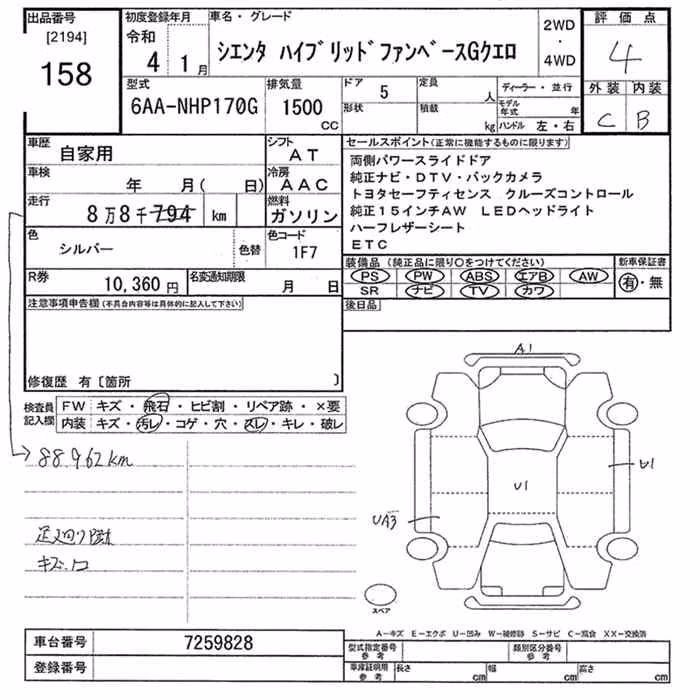 出品番号
[2194]
158
初度登録年月
令和
4 1月
車名・グレード
シエンタ ハイブリッドファンベースGクエロ
2WD
・
4WD
評価点
4
外装 内装
C B
型式
6AA-NHP170G
排気量
1500
CC
ドア 5
形状
定員 人
積載 kg
ディーラー・並行
モデル年式 年
ハンドル 左・右
車歴 自家用
シフト
AT
車検 年 月( 日)
冷房
AAC
走行 8万8千794 km
燃料
ガソリン
色 シルバー
色替
色コード
1F7
R券 10,360円
名変通知期限 月 日
セールスポイント(正常に機能するものに限ります)
両側パワースライドドア
純正ナビ・DTV・バックカメラ
トヨタセーフティセンス クルーズコントロール
純正15インチAW LEDヘッドライト
ハーフレザーシート
ETC
装備品(純正品に限り○をつけてください)
PS PW ABS エアB AW
SR ナビ TV カワ
新車保証書
有・無
後日品
注意事項申告欄(不具合内容等は具体的に記入して下さい)
修復歴 有〔箇所 〕
検査員記入欄
FW キズ・飛石・ヒビ割・リペア跡・×要
内装 キズ・汚レ・コゲ・穴・スレ・キレ・破レ
88.962km
キズ.凹
A1
U1
U1
UA3
スペア
A-キズ E-エクボ U-凹み W-補修跡 S-サビ C-腐食 XX-交換済
車台番号 7259828
登録番号
型式指定番号
参考
類別区分番号
参考
車庫証明用
参考
長さ cm 幅 cm 高さ cm